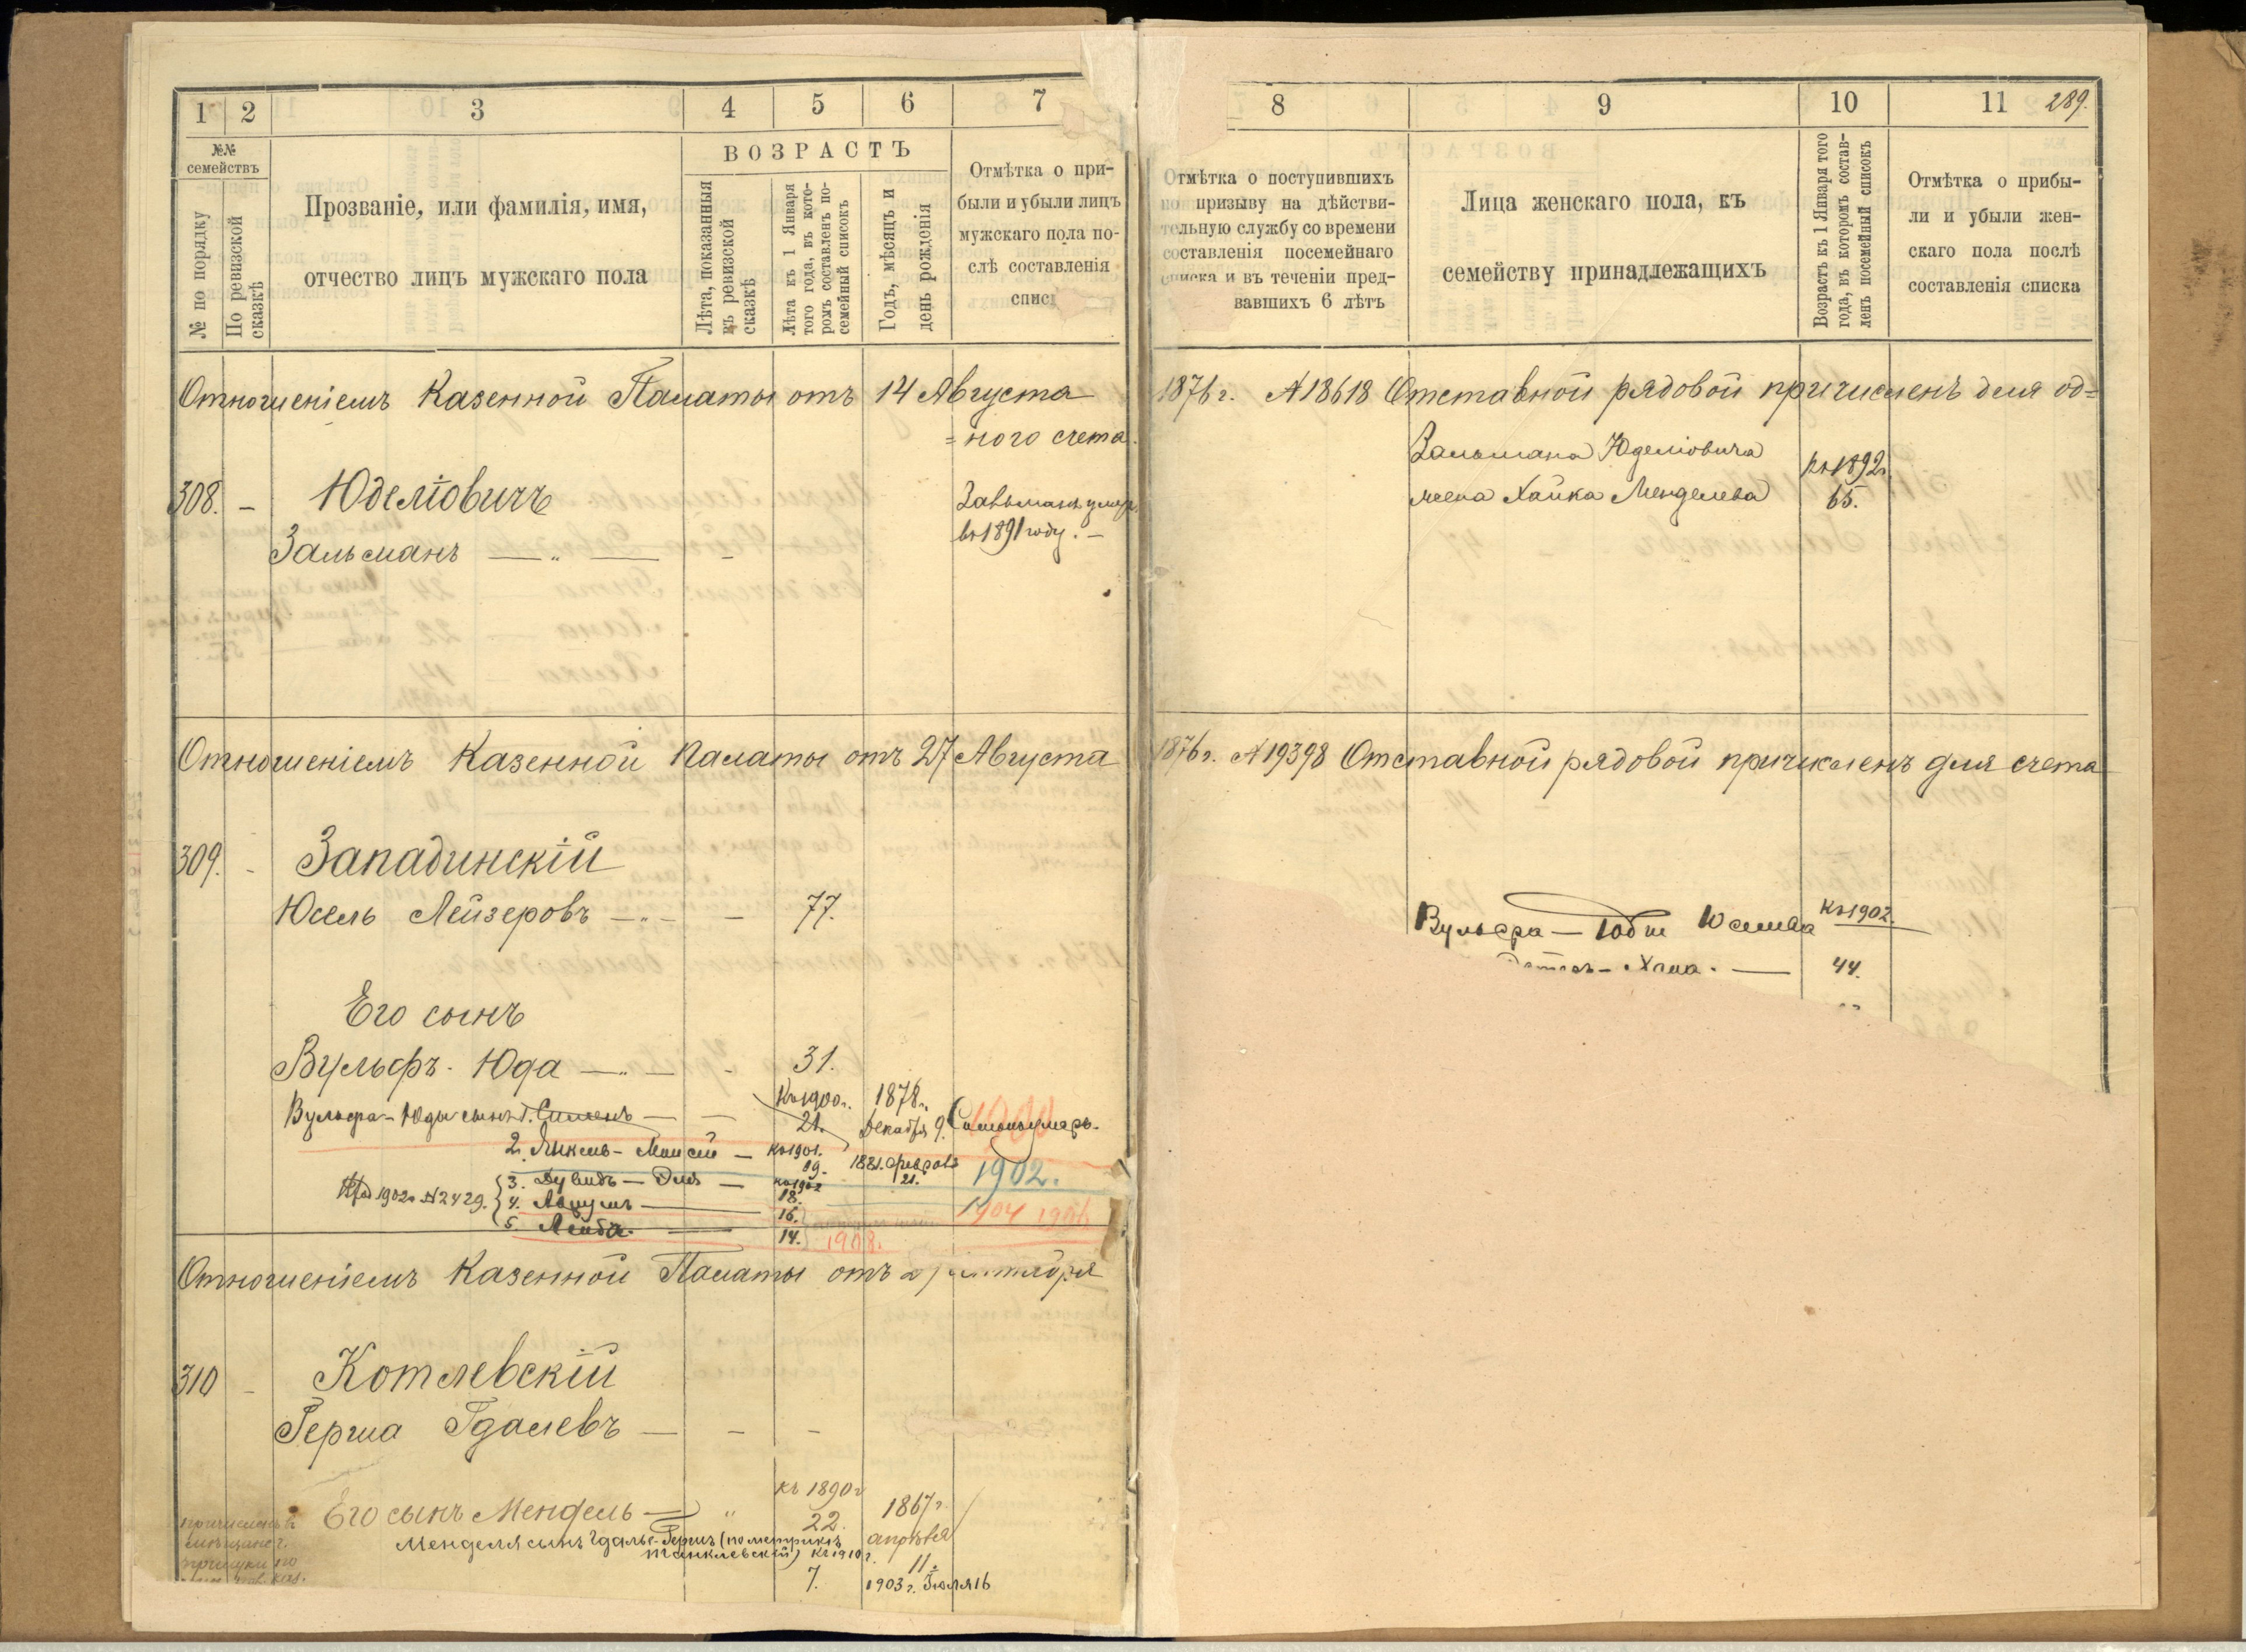 1
2
3
4
5
6
7
№№
семействъ
№ по порядку
По ревизской сказкѣ
Прозваніе, или фамилія, имя,
отчество лицъ мужскаго пола
ВОЗРАСТЪ
Лѣта, показанныя
въ ревизской
сказкѣ
Лѣта къ 1 Января
того года, въ кото-
ромъ составленъ по-
семейный списокъ
Годъ, мѣсяцъ и
день рожденія
Отмѣтка о при-
были и убыли лицъ
мужскаго пола по-
слѣ составленія
Отношеніемъ Казенной Палаты отъ 14 Августа
= ного счета.
308. - Юделіовичъ
Зальманъ — „ — -
Зальманъ умеръ
въ 1891 году. -
Отношеніемъ Казенной Палаты отъ 27 Августа
309. - Западинскій
Юсель Лейзеровъ — „ — - 77.
Его сынъ
Вульфъ - Юда — „ — - 31.
Вульфа - Юды сынъ 1. Симонъ — - Къ 1900 г. 21. 1878 г. Декабря 9. Симонъ умеръ. 1900
2. Янкель - Мойсей — Къ 1901. 19. 1881. Февраля 21. 1902.
1902 №2429.
3. Дувидъ - Эля — Къ 1902 18.
4. Аврумъ — 16. 1904 1906
5. Лейба. — 14. 1908.
Отношеніемъ Казенной Палаты отъ
310 - Котлевскій
Герша Гдалевъ — - -
Его сынъ Мендель — „ къ 1890 г 22. 1867 г. апрѣля 11
Менделя сынъ Гдалье-Гершъ (по метрикѣ
къ 1910 г.
7. 1903 г. Іюля 16
8
9
10
11
289.
Отмѣтка о поступившихъ
по призыву на дѣйстви-
тельную службу со времени
составленія посемейнаго
списка и въ теченіи пред-
вавшихъ 6 лѣтъ
Лица женскаго пола, къ
семейству принадлежащихъ
Возрастъ къ 1 Января того
года, въ которомъ состав-
ленъ посемейный списокъ
Отмѣтка о прибы-
ли и убыли жен-
скаго пола послѣ
составленія списка
1876 г. №18618 Отставной рядовой причисленъ для од=
Зальмана Юделіовича
жена Хайка Менделева
Къ 1892 г.
65.
1876 г. №19398 Отставной рядовой причисленъ для счета
Вульфа — Юды Къ 1902.
Хана. — 44.